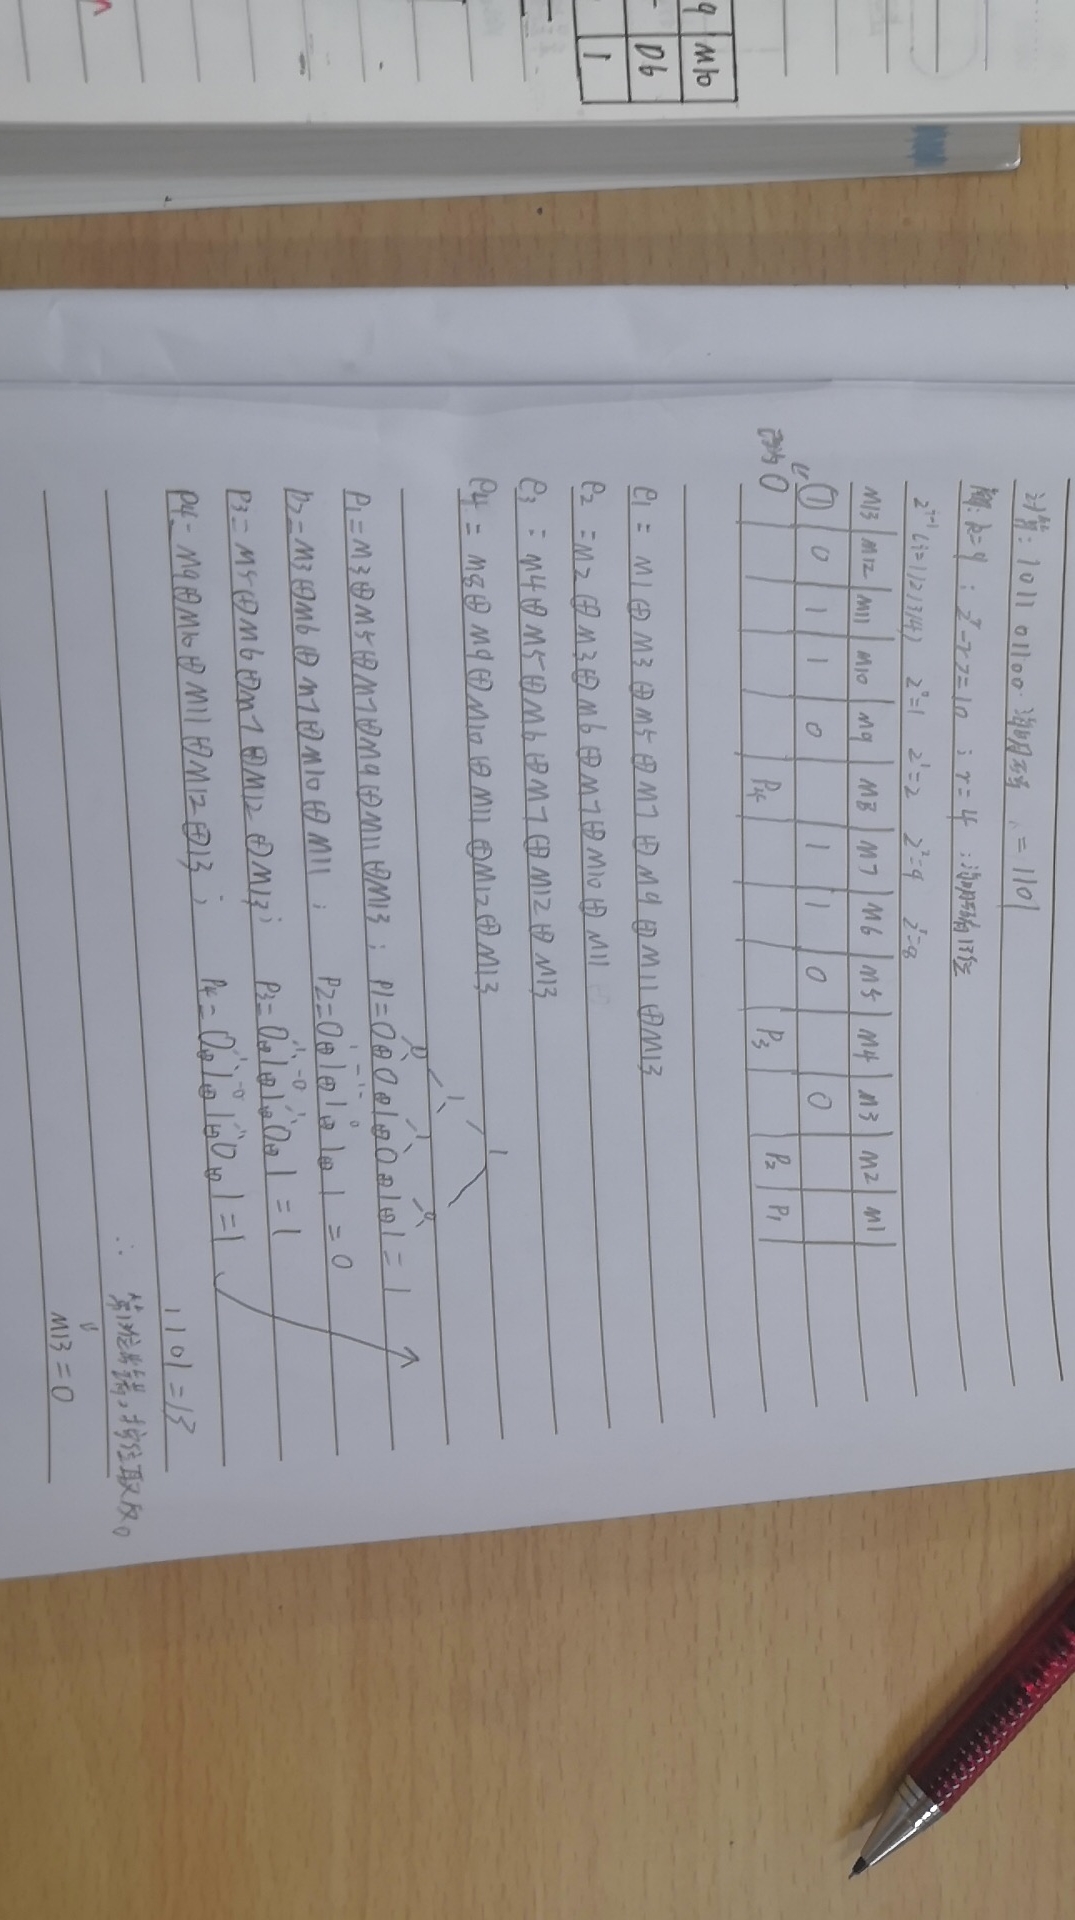 计算: 1011 01100 海明码 = 1101
解: k=9 ; 2^r-r≥10 ; r=4 ; 海明码有13位
2^(i-1) (i=1/2/3/4) 2^0=1 2^1=2 2^2=4 2^3=8
M13 | M12 | M11 | M10 | M9 | M8 | M7 | M6 | M5 | M4 | M3 | M2 | M1
1 0 1 1 0 1 1 0 0
0 P4 P3 P2 P1
e1 = M1⊕M3⊕M5⊕M7⊕M9⊕M11⊕M13
e2 = M2⊕M3⊕M6⊕M7⊕M10⊕M11
e3 = M4⊕M5⊕M6⊕M7⊕M12⊕M13
e4 = M8⊕M9⊕M10⊕M11⊕M12⊕M13
P1=M3⊕M5⊕M7⊕M9⊕M11⊕M13 ; P1=0⊕0⊕1⊕0⊕1⊕1=1
P2=M3⊕M6⊕M7⊕M10⊕M11 ; P2=0⊕1⊕1⊕1⊕1=0
P3=M5⊕M6⊕M7⊕M12⊕M13 ; P3=0⊕1⊕1⊕0⊕1=1
P4=M9⊕M10⊕M11⊕M12⊕13 ; P4=0⊕1⊕1⊕0⊕1=1
1101=13
∴ 第13位出错,将位取反。
M13=0
M10
D6
1